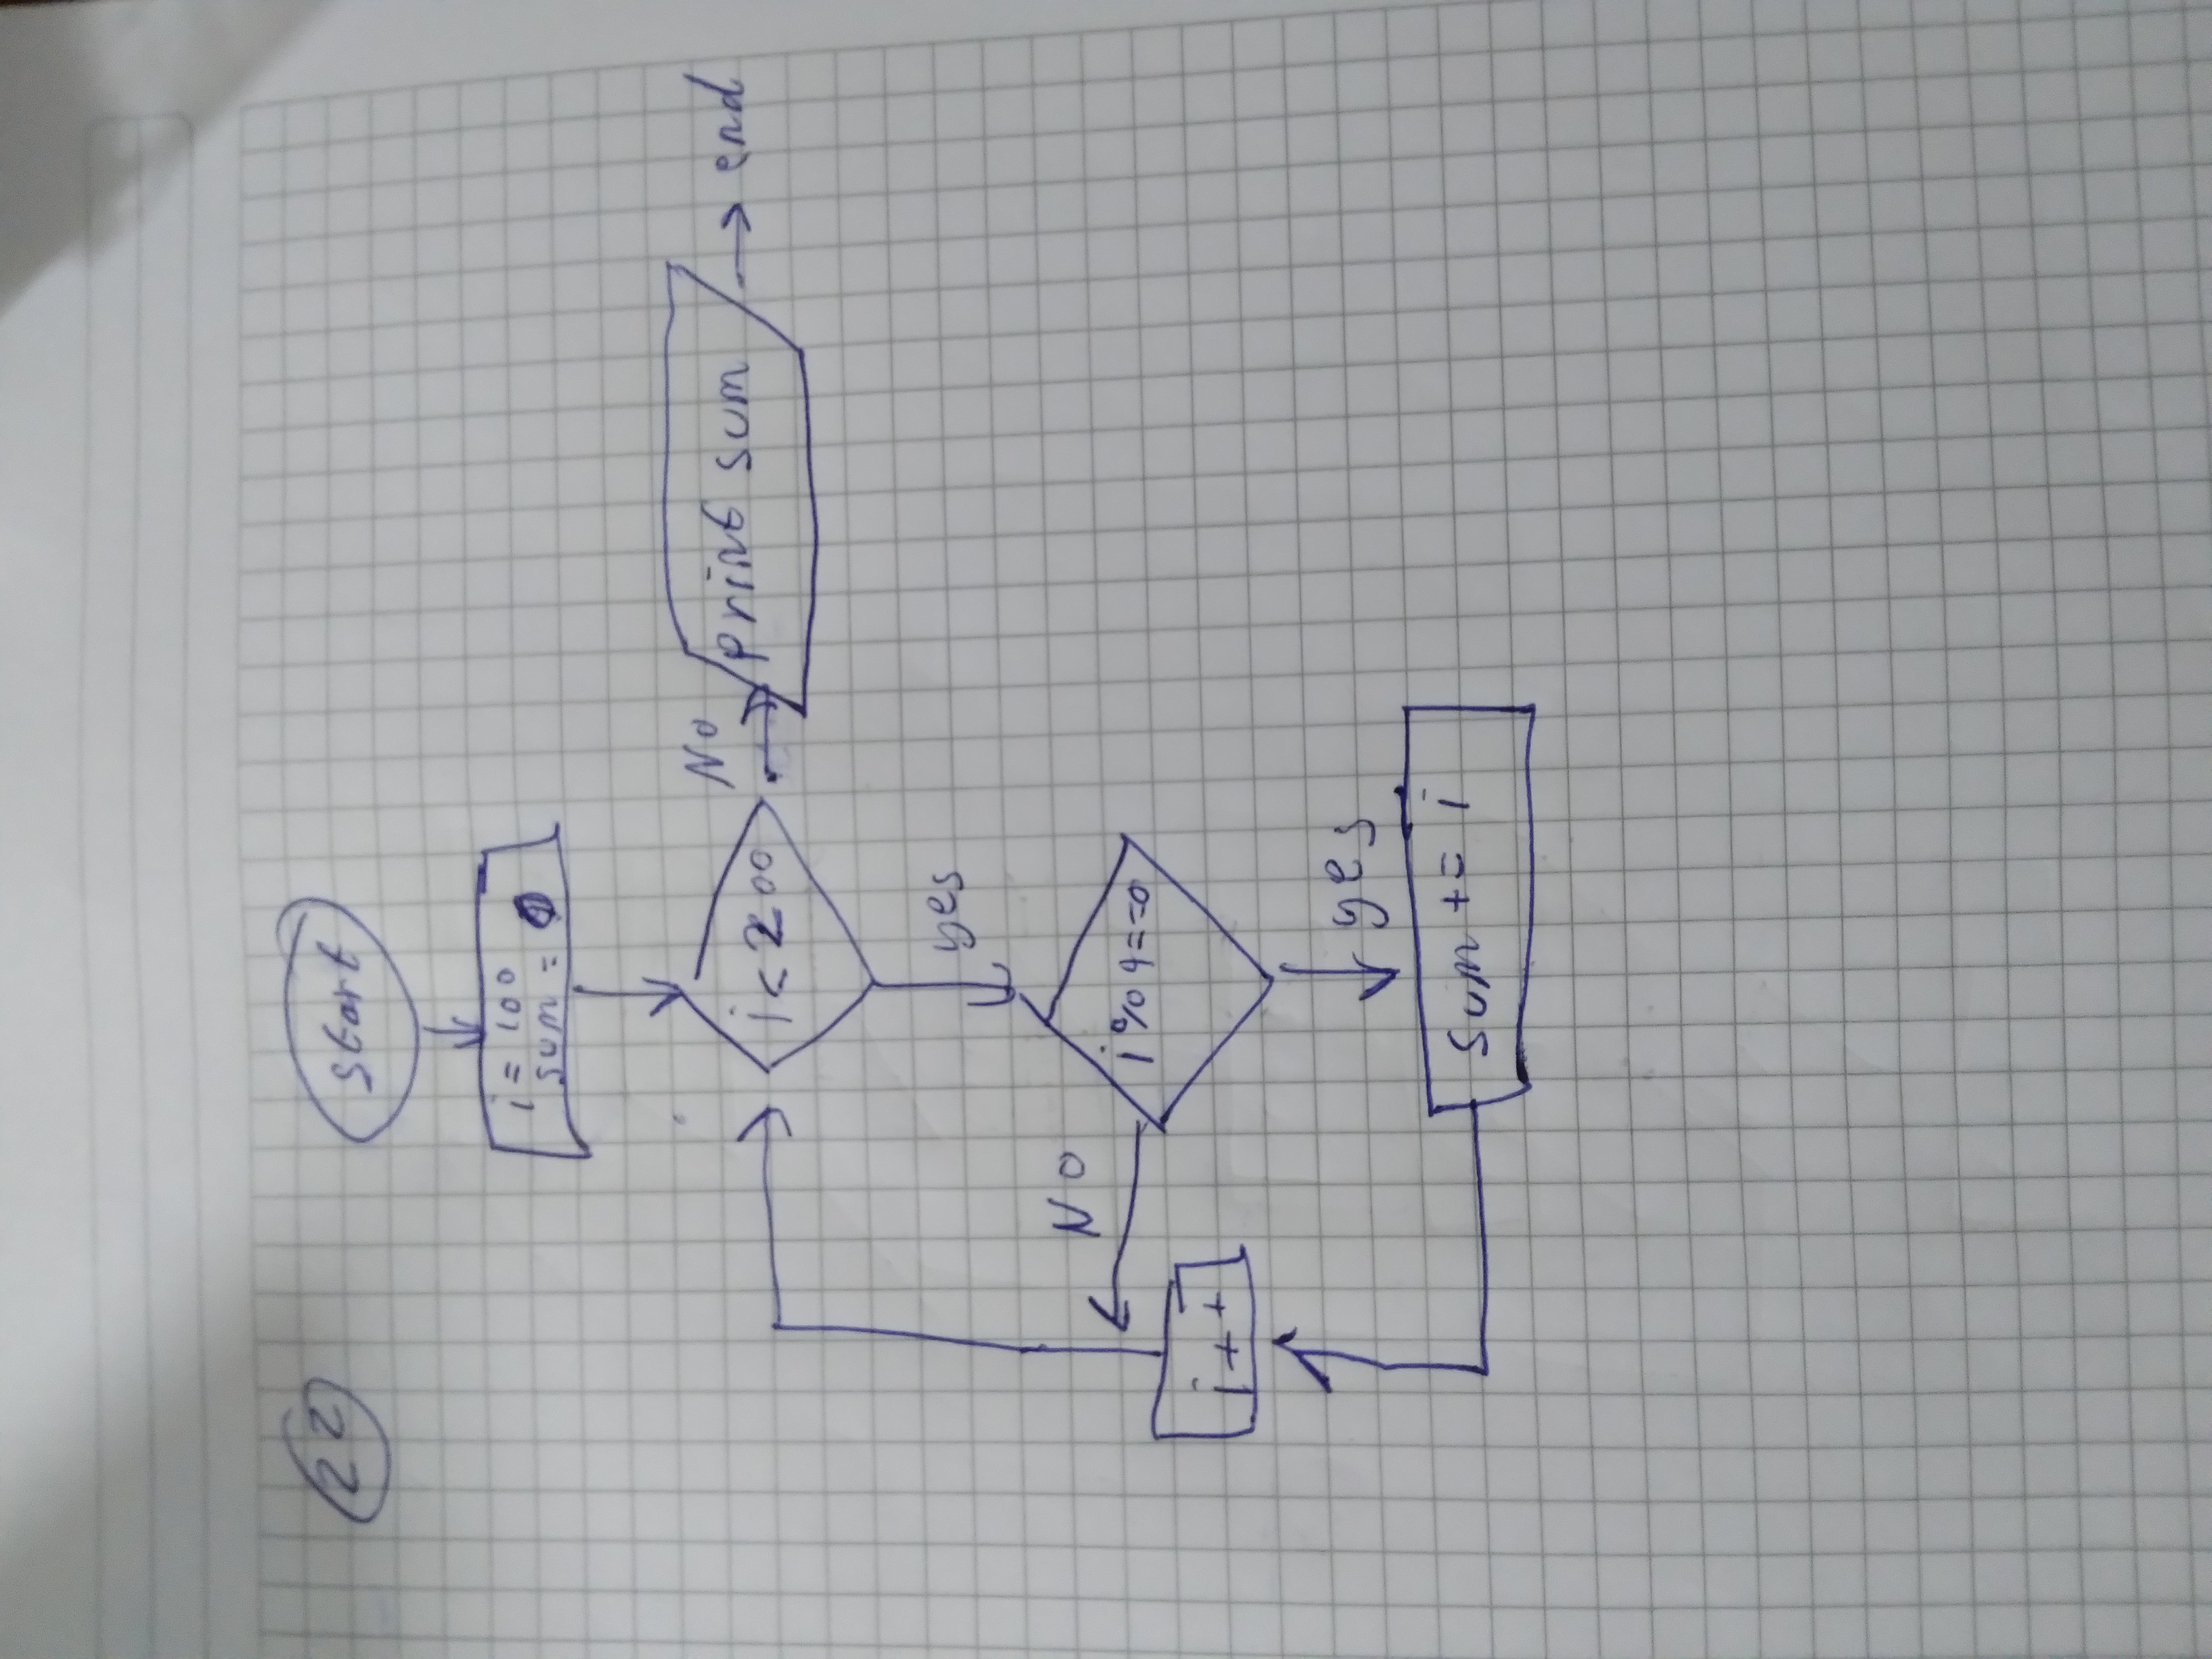 22
start
i = 100
sum = 0
i < 200
No
print sum
end
yes
No
i % 9 == 0
i++
yes
sum += i